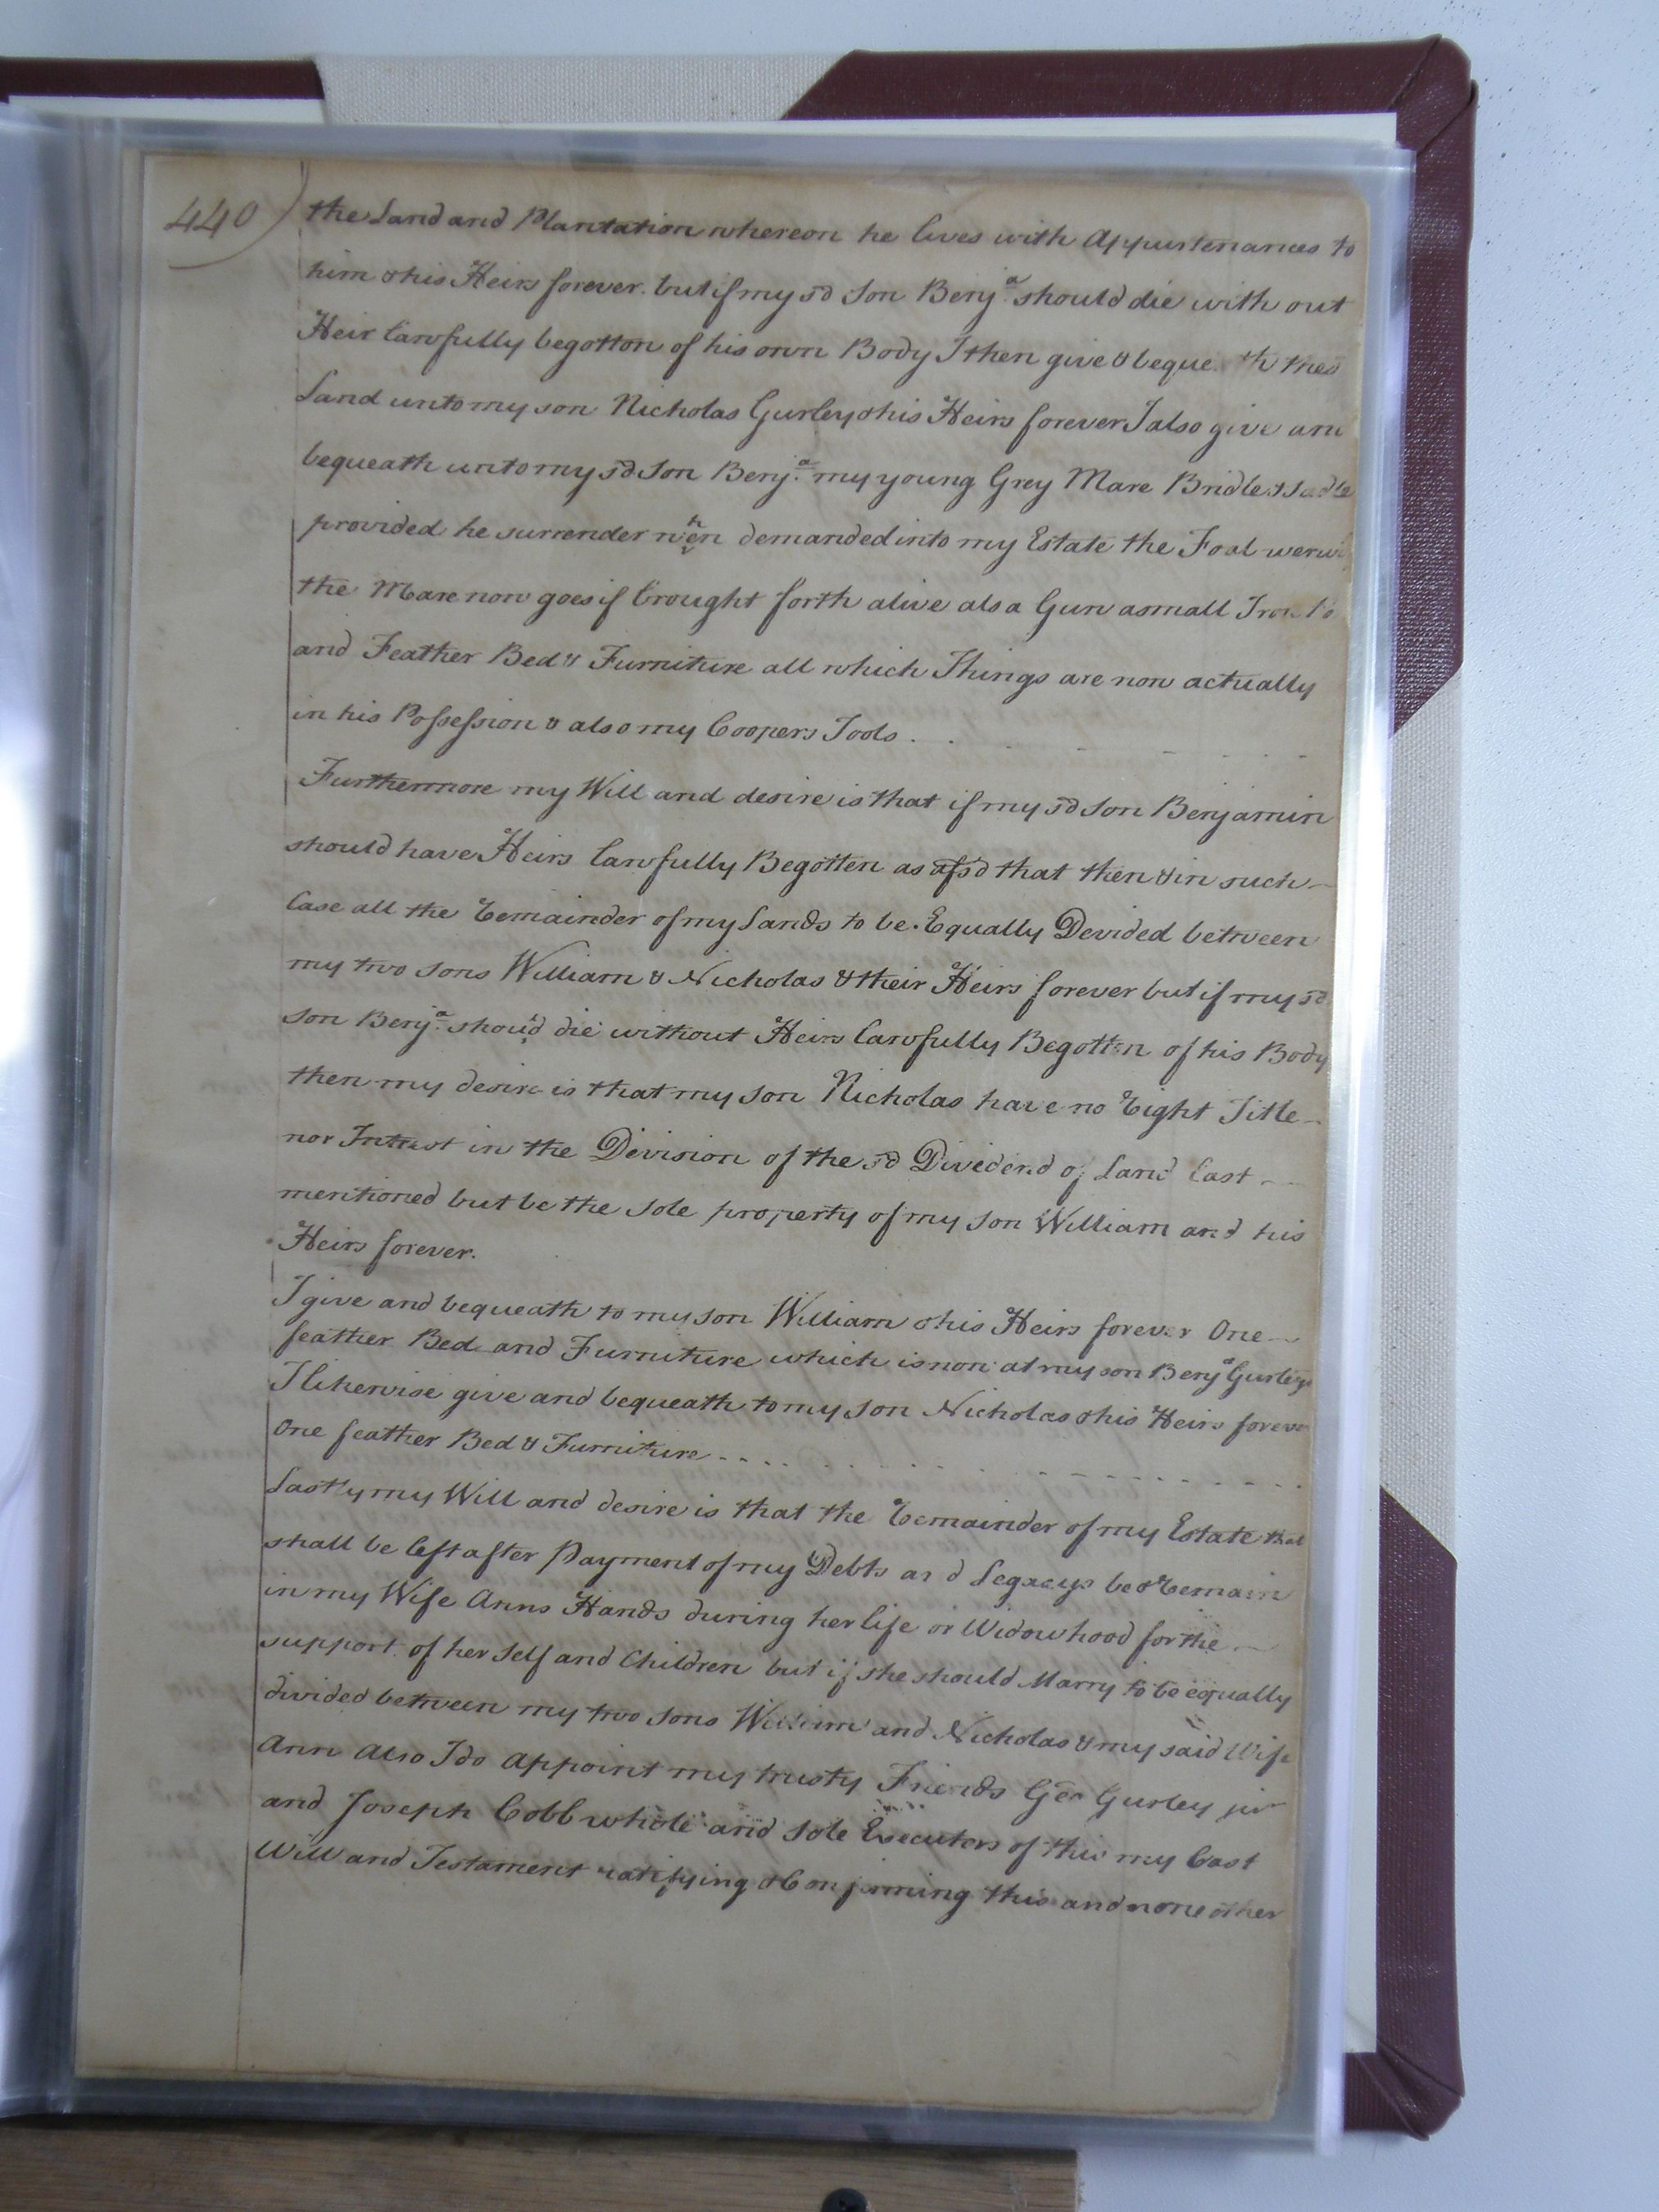 440)
the Land and Plantation whereon he lives with Appurtenances to
him & his Heirs forever. but if my sd Son Benja. should die with out
Heir lawfully begotton of his own Body I then give & beque th
Land unto my son Nicholas Gurley & his Heirs forever I also give and
bequeath unto my sd Son Benja. my young Grey Mare Bridle & Sadle
provided he surrender when demanded into my Estate the Foal
the Mare now goes if brought forth alive also a Gun a small Iron
and Feather Bed & Furniture all which Things are now actually
in his Possession & also my Coopers Tools . . - - - - -
Furthermore my Will and desire is that if my sd Son Benjamin
should have Heirs lawfully Begotten as afsd that then & in such
Case all the Remainder of my Lands to be Equally Devided between
my two sons William & Nicholas & their Heirs forever but if my sd
son Benja. shoud die without Heirs lawfully Begotten of his Body
then my desire is that my son Nicholas have no Right Title
nor Intrest in the Division of the sd Divedend of Land last
mentioned but be the sole property of my son William and his
Heirs forever.
I give and bequeath to my son William & his Heirs forever One
feather Bed and Furniture which is now at my son Benja Gurleys
I likewise give and bequeath to my son Nicholas & his Heirs forever
One feather Bed & Furniture - - - - - - - - - - -
Lastly my Will and desire is that the Remainder of my Estate that
shall be left after Payment of my Debts and Legacys be & Remain
in my Wife Anns Hands during her life or Widowhood for the
support of her self and Children but if she should Marry to be equally
divided between my two sons William and Nicholas & my said Wife
Ann Also I do Appoint my trusty Friends Geo Gurley jur
and Joseph Cobb whole and sole Executors of this my last
Will and Testament ratifying & Confirming this and none other